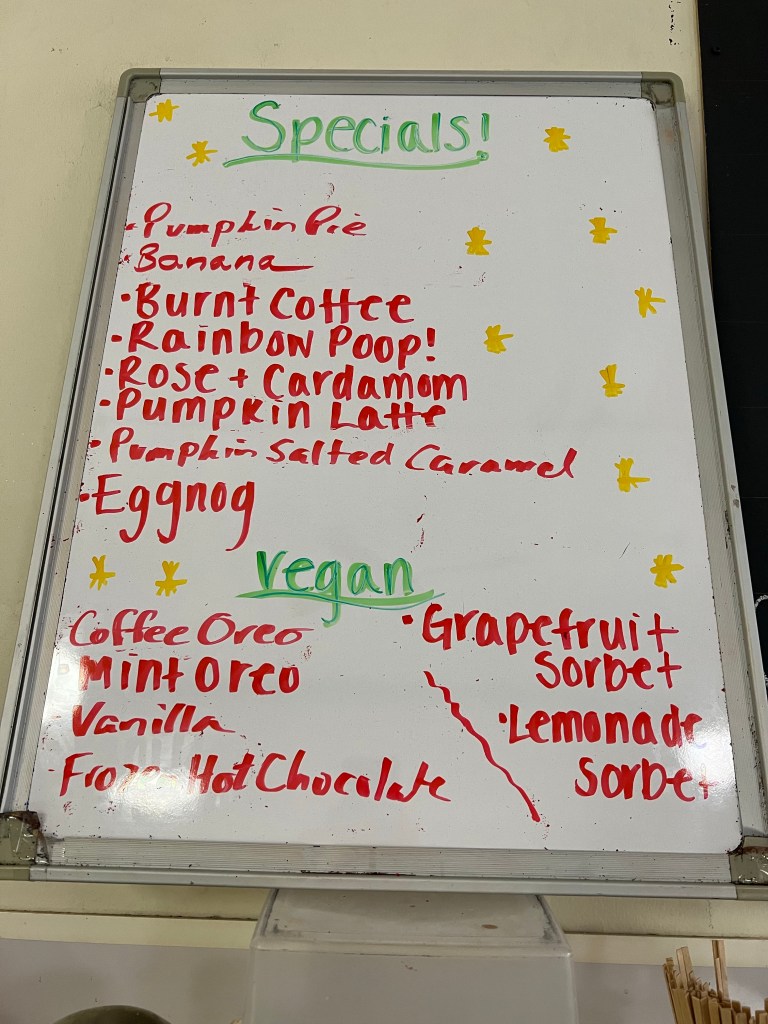 Specials!
· Pumpkin Pie
· Banana
· Burnt Coffee
· Rainbow Poop!
· Rose + Cardamom
· Pumpkin Latte
· Pumpkin Salted Caramel
· Eggnog
vegan
Coffee Oreo
· Mint Oreo
· Vanilla
· Frozen Hot Chocolate
· Grapefruit
Sorbet
· Lemonade
Sorbet